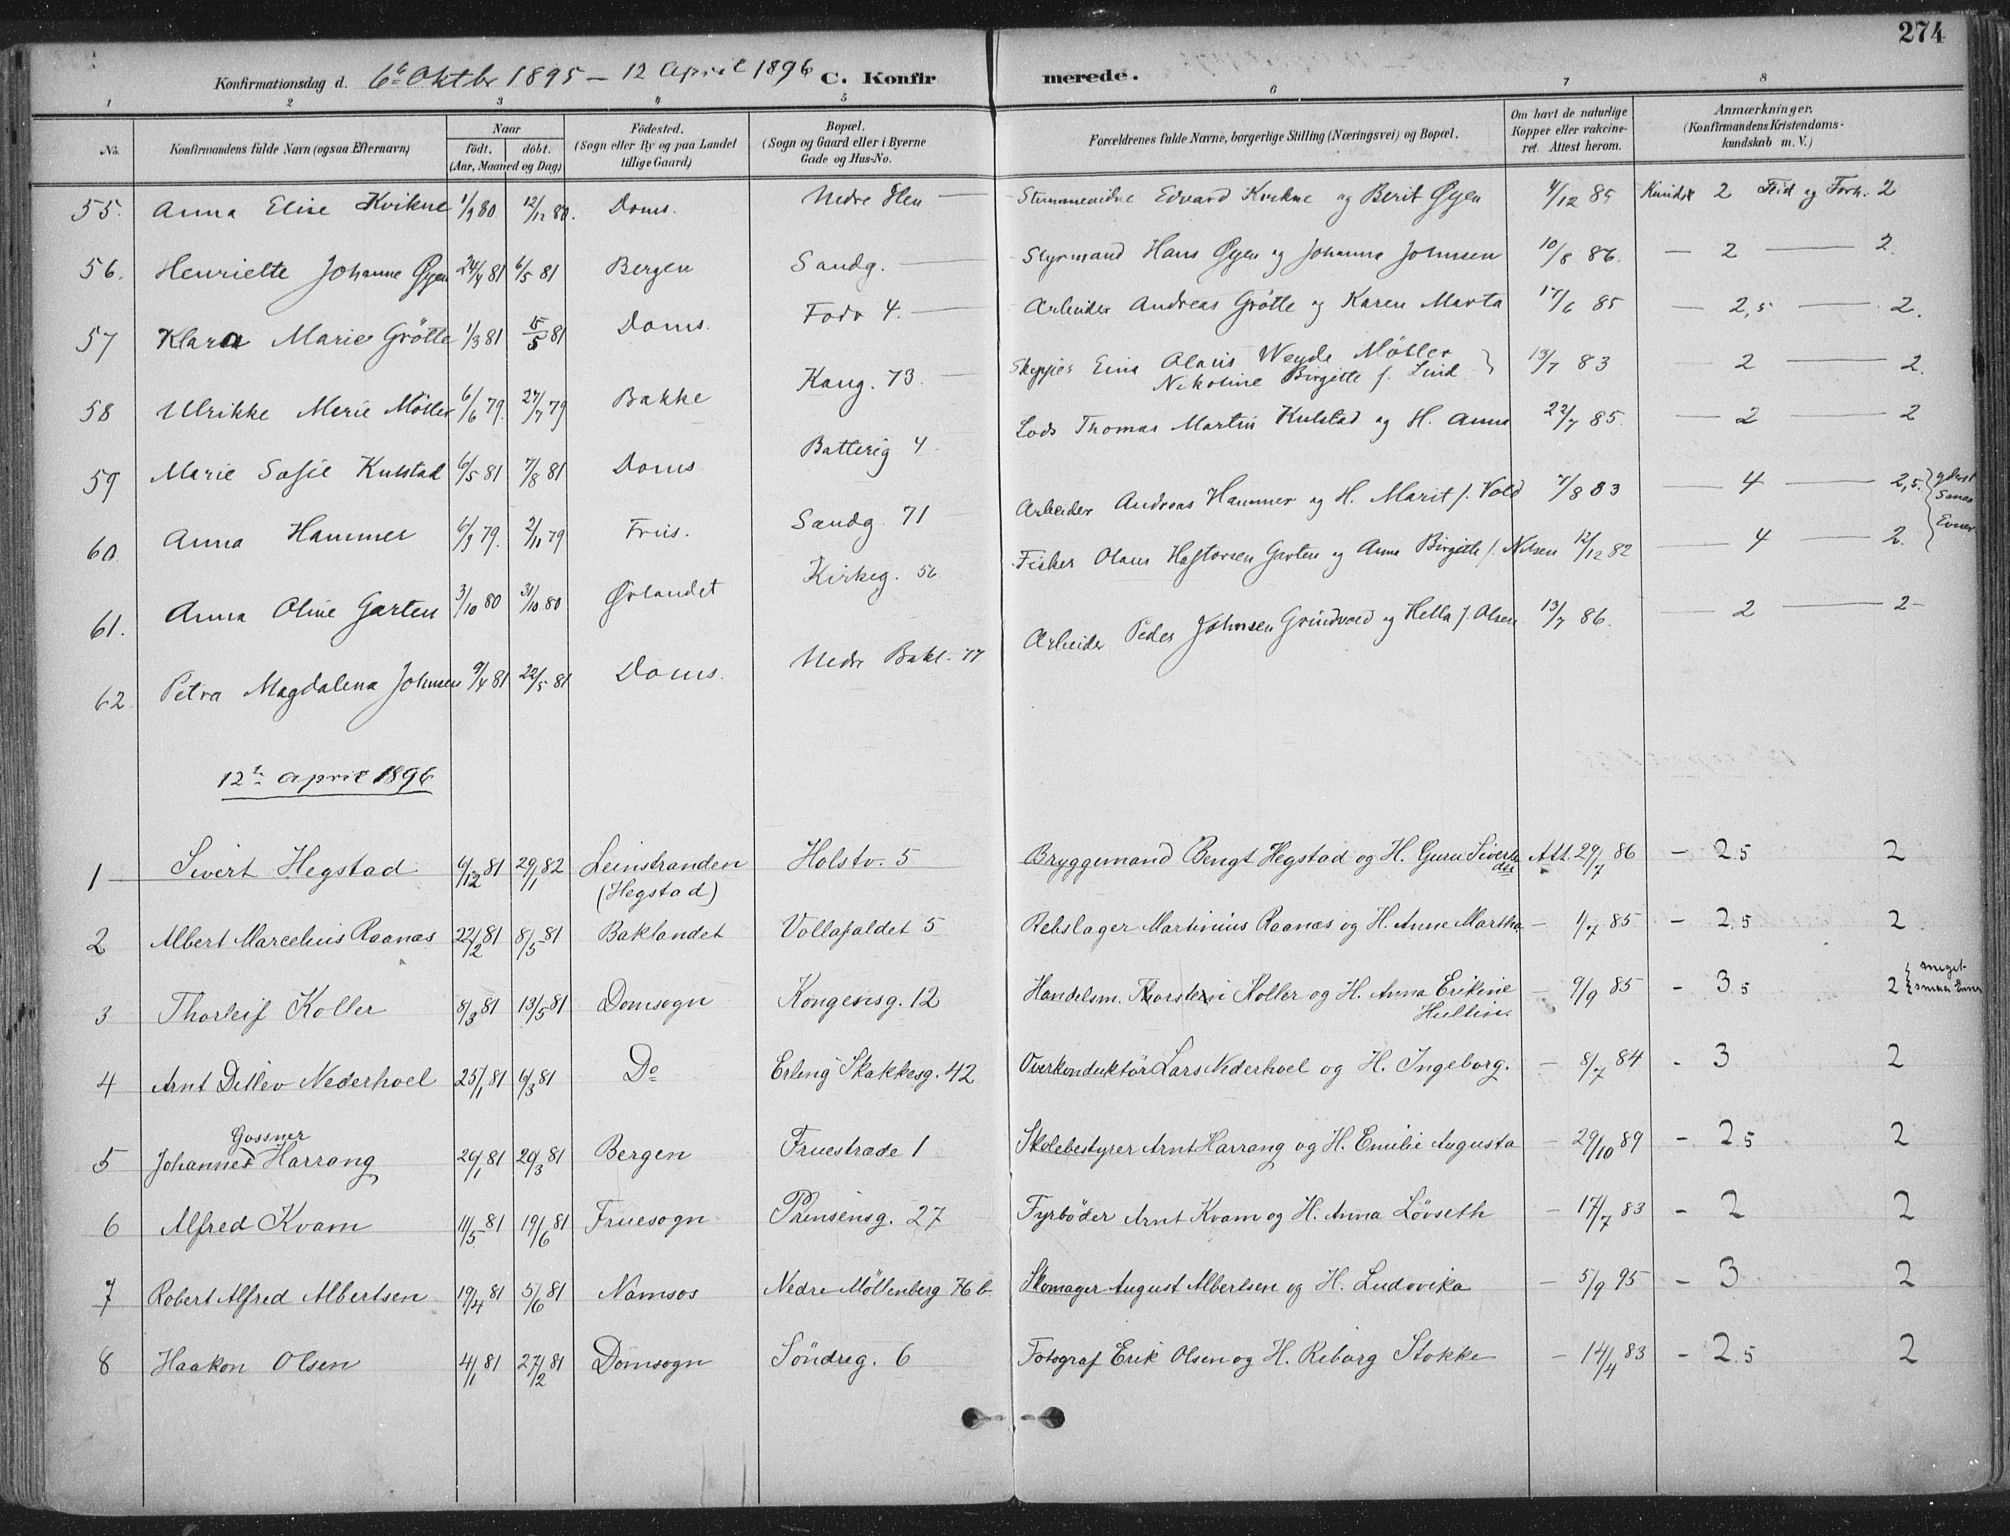 274
Konfirmationsdag d. 6te Oktbr 1895 – 12 April 1896 C. Konfirmerede.
1 2 3 4 5 6 7 8
No. Konfirmandens fulde Navn (ogsaa Efternavn)
Naar
födt. döbt.
(Aar, Maaned og Dag)
Födested.
(Sogn eller By og paa Landet
tillige Gaard)
Bopæl.
(Sogn og Gaard eller i Byerne
Gade og Hus-No.
Forældrenes fulde Navne, borgerlige Stilling (Næringsvei) og Bopæl.
Om havt de naturlige
Kopper eller vakcine-
ret. Attest herom.
Anmærkninger.
(Konfirmandens Kristendoms-
kundskab m. V.)
55. Anna Elise Kvikne 1/9 80 12/12 80. Doms. Nedre Ilen — Edvard Kvikne og Berit Øyen 4/12 85 Kundsk 2 Flid og Forh. 2
56. Henriette Johanne Øyen 24/4 81 6/5 81 Bergen Sandg. — Styrmand Hans Øyen og Johanna Johnsen 10/8 86. — 2 — 2.
57 Klara Marie Grötte 1/3 81 15/5 81 Doms. Fodv 4. — Arbeider Andreas Grötte og Karen Marta 17/6 85 — 2,5 — 2.
58 Ulrikke Marie Möller 6/6 79. 27/7 79 Bakke Kong. 73. — Skipper Olaus Weyde Möller
Nikoline Birgitte f. Lind } 13/7 83 2 — 2.
59 Marie Sofie Kulstad 6/5 81 7/8 81 Doms Batterig 4. Lods Thomas Martin Kulstad og H. Anna 22/7 85. — 2 — 2
60. Anna Hammer 6/9 79. 2/11 79 Frus. Sandg. 71 — Arbeider Andreas Hammer og H. Marit f. Vold 7/8 83 — 4 — 2,5. yderst
Evner
61. Anna Oline Garten 3/10 80 31/10 80 Ørlandet Kirkeg. 56 Fisker Olaus Haftorsen Garten og Anna Birgitte f. Nilsen 12/12 82 — 4 — 2.
62. Petra Magdalena Johnsen 9/4 81 22/5 81 Doms. Nedre Bakl. 77 Arbeider Peder Johnsen Grindvold og Hella f. Olsen 13/7 86. — 2 — 2
12te April 1896
1 Sivert Hegstad 6/12 81 29/1 82 Leinstranden
(Hegstad) Holstv. 5 Bryggemand Bengt Hegstad og H. Guru Siverts
dtr Att. 29/7 86 – 2.5 2
2 Albert Marcelius Raanæs 22/2 81 8/5 81 Baklandet Vollafaldet 5 Rebslager Martinius Raanæs og H. Anne Martha — 1/7 85 – 2.5 2
3 Thorleif Koller 8/3 81 13/5 81 Domsogn Kongensg. 12 Handelsm. Thorstein Koller og H. Anna Erikine
Hultin. — 9/9 85 – 3.5 2 { meget
smaa Evner
4 Arnt Detlev Nederhoel 25/1 81 6/3 81 Do Erling Skakkesg. 42 Overkonduktör Lars Nederhoel og H. Ingeborg. – 8/7 84 – 3 2
Gossner
5 Johannes Harrang 26/1 81 20/3 81 Bergen Fruestræde 1 Skolebestyrer Arnt Harrang og H. Emilie Augusta – 29/10 89 – 2.5 2
6 Alfred Kvam 11/5 81 19/6 81 Fruesogn Prinsensg. 27 Fyrböder Arnt Kvam og H. Anna Lövseth – 17/7 83 – 2 2
7 Robert Alfred Albertsen 19/4 81 5/6 81 Namsos Nedre Möllenberg 76 b. Skomager August Albertsen og H. Ludovika – 5/9 95 – 3 2
8 Haakon Olsen 4/1 81 27/2 81 Domsogn Söndreg. 6 Fotograf Erik Olsen og H. Reborg Stokke – 14/4 83 – 2.5 2